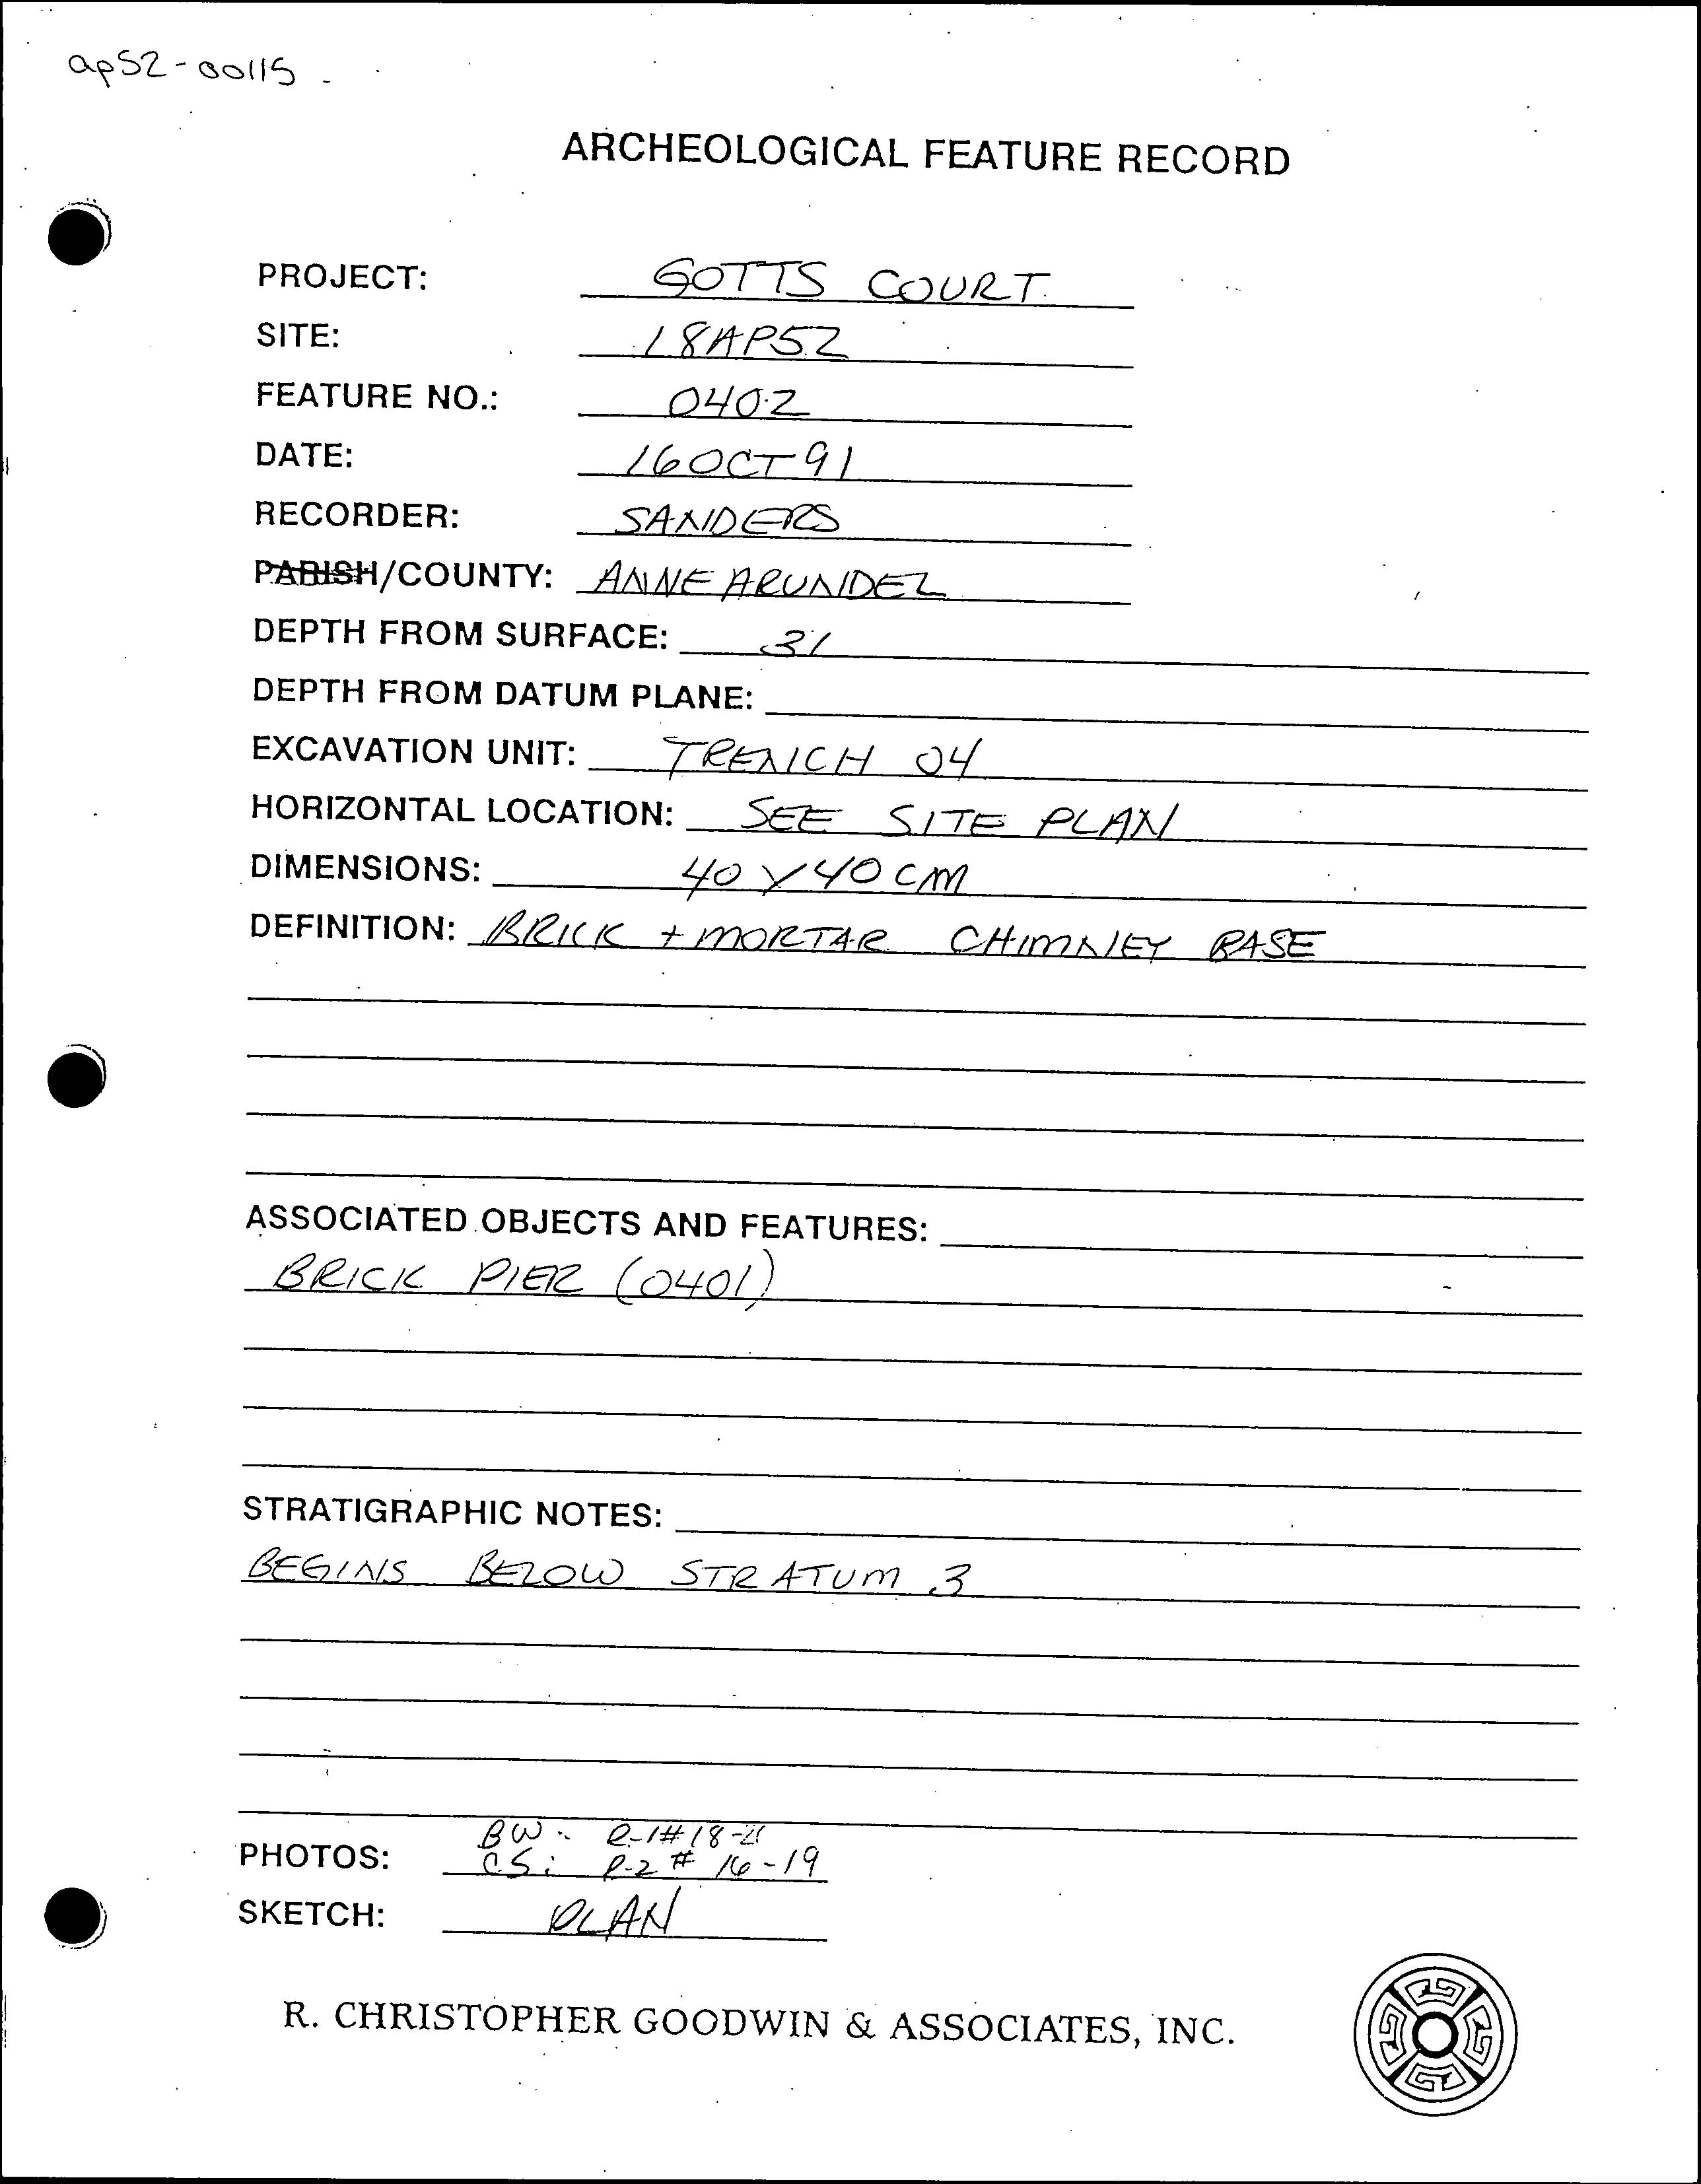 ap52-00115
ARCHEOLOGICAL FEATURE RECORD
PROJECT: GOTTS COURT
SITE: 18AP52
FEATURE NO.: 0402
DATE: 16 OCT 91
RECORDER: SANDERS
PARISH/COUNTY: ANNE ARUNDEL
DEPTH FROM SURFACE: 31
DEPTH FROM DATUM PLANE:
EXCAVATION UNIT: TRENCH 04
HORIZONTAL LOCATION: SEE SITE PLAN
DIMENSIONS: 40 X 40 CM
DEFINITION: BRICK + MORTAR CHIMNEY BASE
ASSOCIATED OBJECTS AND FEATURES:
BRICK PIER (0401)
STRATIGRAPHIC NOTES:
BEGINS BELOW STRATUM 3
BW: R-1 # 18-21
PHOTOS: CS: R-2 # 16-19
SKETCH: PLAN
R. CHRISTOPHER GOODWIN & ASSOCIATES, INC.